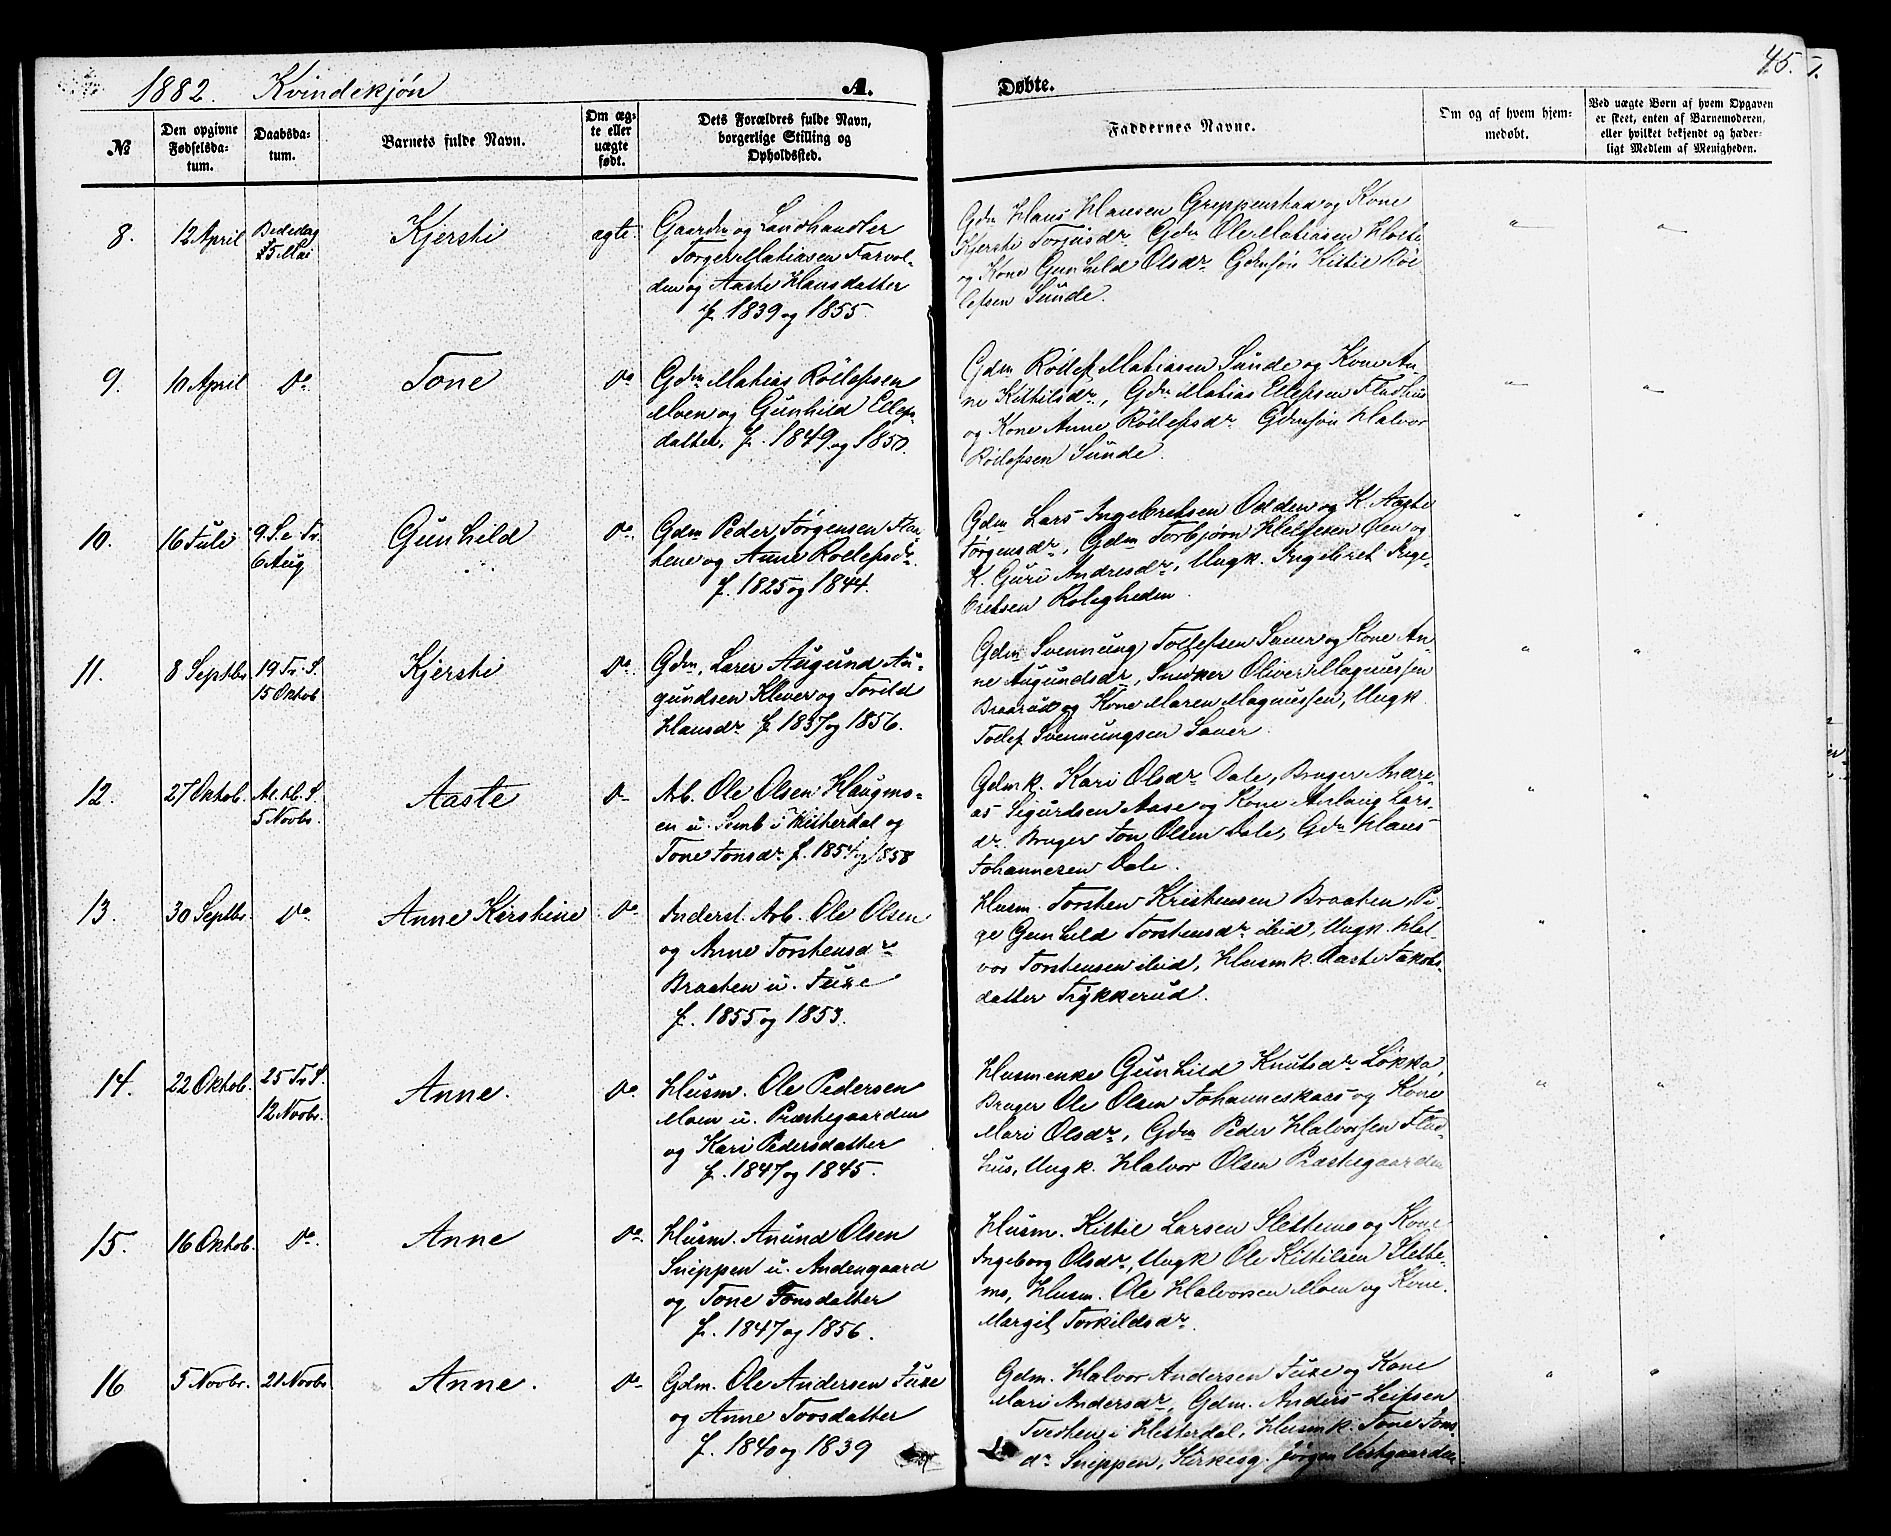 1882. Kvindekjøn
A.
Døbte.
45.
№
Den opgivne Fødselsdatum.
Daabsdatum.
Barnets fulde Navn.
Om ægte eller uægte født.
Dets Forældres fulde Navn, borgerlige Stilling og Opholdssted.
Faddernes Navne.
Om og af hvem hjemmedøbt.
Ved uægte Børn af hvem Opgaven er skeet, enten af Barnemoderen, eller hvilket bekjendt og hæderligt Medlem af Menigheden.
8. 12 April
Bededag
5 Mai
Kjersti
ægte.
Gaardm og Landhandler
Torger Matiasen Farvol-
den og Aaste Hansdatter
f. 1839 og 1855.
Gdm Hans Hansen Greppenstad og Kone
Kjersti Torjusdr Gdm Ole Matiasen Holte
og Kone Gunhild Olsdr Gdmsøn Kittil Röi
lefsen Sunde.
9. 10 April
do
Tone
do
Gdm Matias Röilefsen
Moen og Gunhild Ellefs-
datter, f. 1849 og 1850.
Gdm Röilef Matiasen Sunde og Kone An-
ne Kittilsdr, Gdm Matias Ellefsen Fladhus
og Kone Anne Röilefsdr Gdmsön Halvor
Röilefsen Sunde.
10. 16 Juli
9. S. e. Tr.
6 Aug
Gunhild
do
Gdm Peder Jørgensen
og Anne Rollefsdr.
f. 1825 og 1844.
Gdm Lars Ingebretsen Odden og K. Aaste
Jørgensdr, Gdm Torbjørn Helgesen Öen og
K. Guri Andresdr, Ungk. Ingebret Inge-
bretsen Roligheden.
11. 8 Septbr
19 Tr. S.
15 Oktob
Kjersti
do
Gdm, Lærer Augund Au-
gundsen Klever og Torild
Hansdr f. 1837 og 1856.
Gdm Svennung Tollefsen Sauer og Kone An-
ne Augundsdr, Snidker Oliver Magnussen
Braarud og Kone Maren Magnussen, Ungk
Tollef Svennungsen Sauer.
12. 27 Oktob.
Al. Hl. S.
5 Novbr.
Aaste
do
Arb. Ole Olsen Haugmo-
en u. Semb i Hitterdal og
Tone Jonsdr f. 1854 og 1858
Gdmk. Kari Olsdr Dale, Bruger Andre-
as Sigurdsen Aase og Kone Anlaug Lars-
dr. Bruger Jon Olsen Dale, Gdm Hans
Johannesen Dale.
13. 30 Septbr.
do
Anne Kirstine
do
Anderst. Arb. Ole Olsen
og Anne Torstensdr
Braaten u. Fuxe
f. 1855 og 1853.
Husm. Torsten Kristensen Braaten, Pi-
ge Gunhild Torstensdr ibid, Ungk. Hal-
vor Torstensen ibid, Husmk. Aaste Jakobs-
datter Trykkerud.
14. 22 Oktob.
25 Tr S.
12 Novbr.
Anne.
do
Husm. Ole Pedersen
Moen u. Præstegaarden
og Kari Pedersdatter
f. 1847 og 1845.
Husmenke Gunhild Knutsdr Løkka,
Bruger Ole Olsen Johanneskaas og Kone
Mari Olsdr, Gdm Peder Halvorsen Flad-
hus, Ungk. Halvor Olsen Præstegaarden
15. 16 Oktob.
do.
Anne
do
Husm. Anund Olsen
Snippen u. Andengaard
og Tone Jonsdatter
f. 1847 og 1856.
Husm. Kittil Larsen Slettemo og Kone
Ingeborg Olsdr, Ungk Ole Kittilsen Slette-
mo, Husm. Ole Halvorsen Moen og Kone
Margit Torkildsdr.
16 5 Novbr.
21 Novbr
Anne.
do
Gdm. Ole Andersen Fuxe
og Anne Torsdatter
f. 1840 og 1839
Gdm. Halvor Andersen Fuxe og Kone
Mari Andersdr, Gdm. Anders Leifsen
Tveiten i Hitterdal, Husmk. Tone Jons-
dr Snippen, Kirkesg. Jørgen Vestgaarden